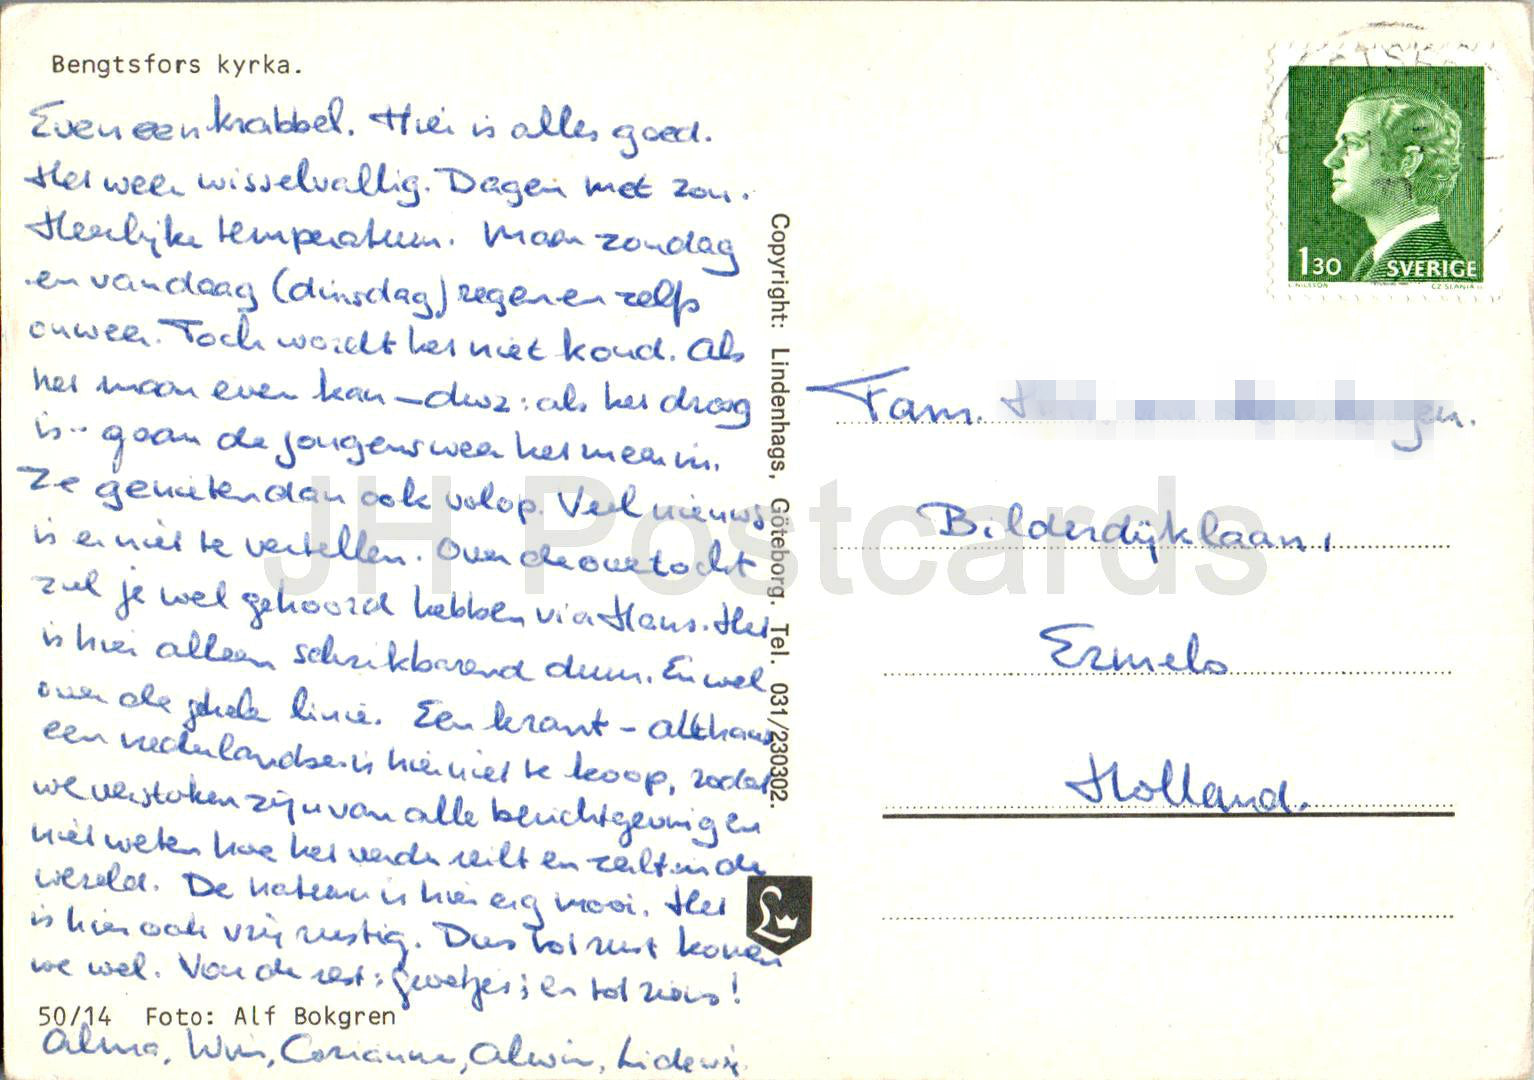 Bengtsfors kyrka.
Even een krabbel. Hier is alles goed.
Het weer wisselvallig. Dagen met zon.
Heerlijke temperatuur. Maar zondag
en vandaag (dinsdag) regen en zelfs
onweer. Toch wordt het niet koud. Als
het maar even kan – dwz: als het droog
is – gaan de jongens weer het meer in.
Ze genieten dan ook volop. Veel nieuws
is er niet te vertellen. Over de overtocht
zul je wel gehoord hebben via Hans. Het
is hier alleen schrikbarend duur. En wel
over de gehele linie. Een krant – althans
een nederlandse is hier niet te koop, zodat
we verstoken zijn van alle berichtgeving en
niet weten hoe het verder reilt en zeilt in de
wereld. De natuur is hier erg mooi. Het
is hier ook vrij rustig. Dus tot rust komen
we wel. Van de rest: groetjes; en tot ziens!
50/14 Foto: Alf Bokgren
Alma, Wim, Corianne, Alwin, Lidewij.
Copyright: Lindenhags, Göteborg. Tel. 031/230302.
L
130 SVERIGE
L NILSSON CZ SLANIA
Fam.
Bilderdijklaan,
Ermelo
Holland.
JH Postcards